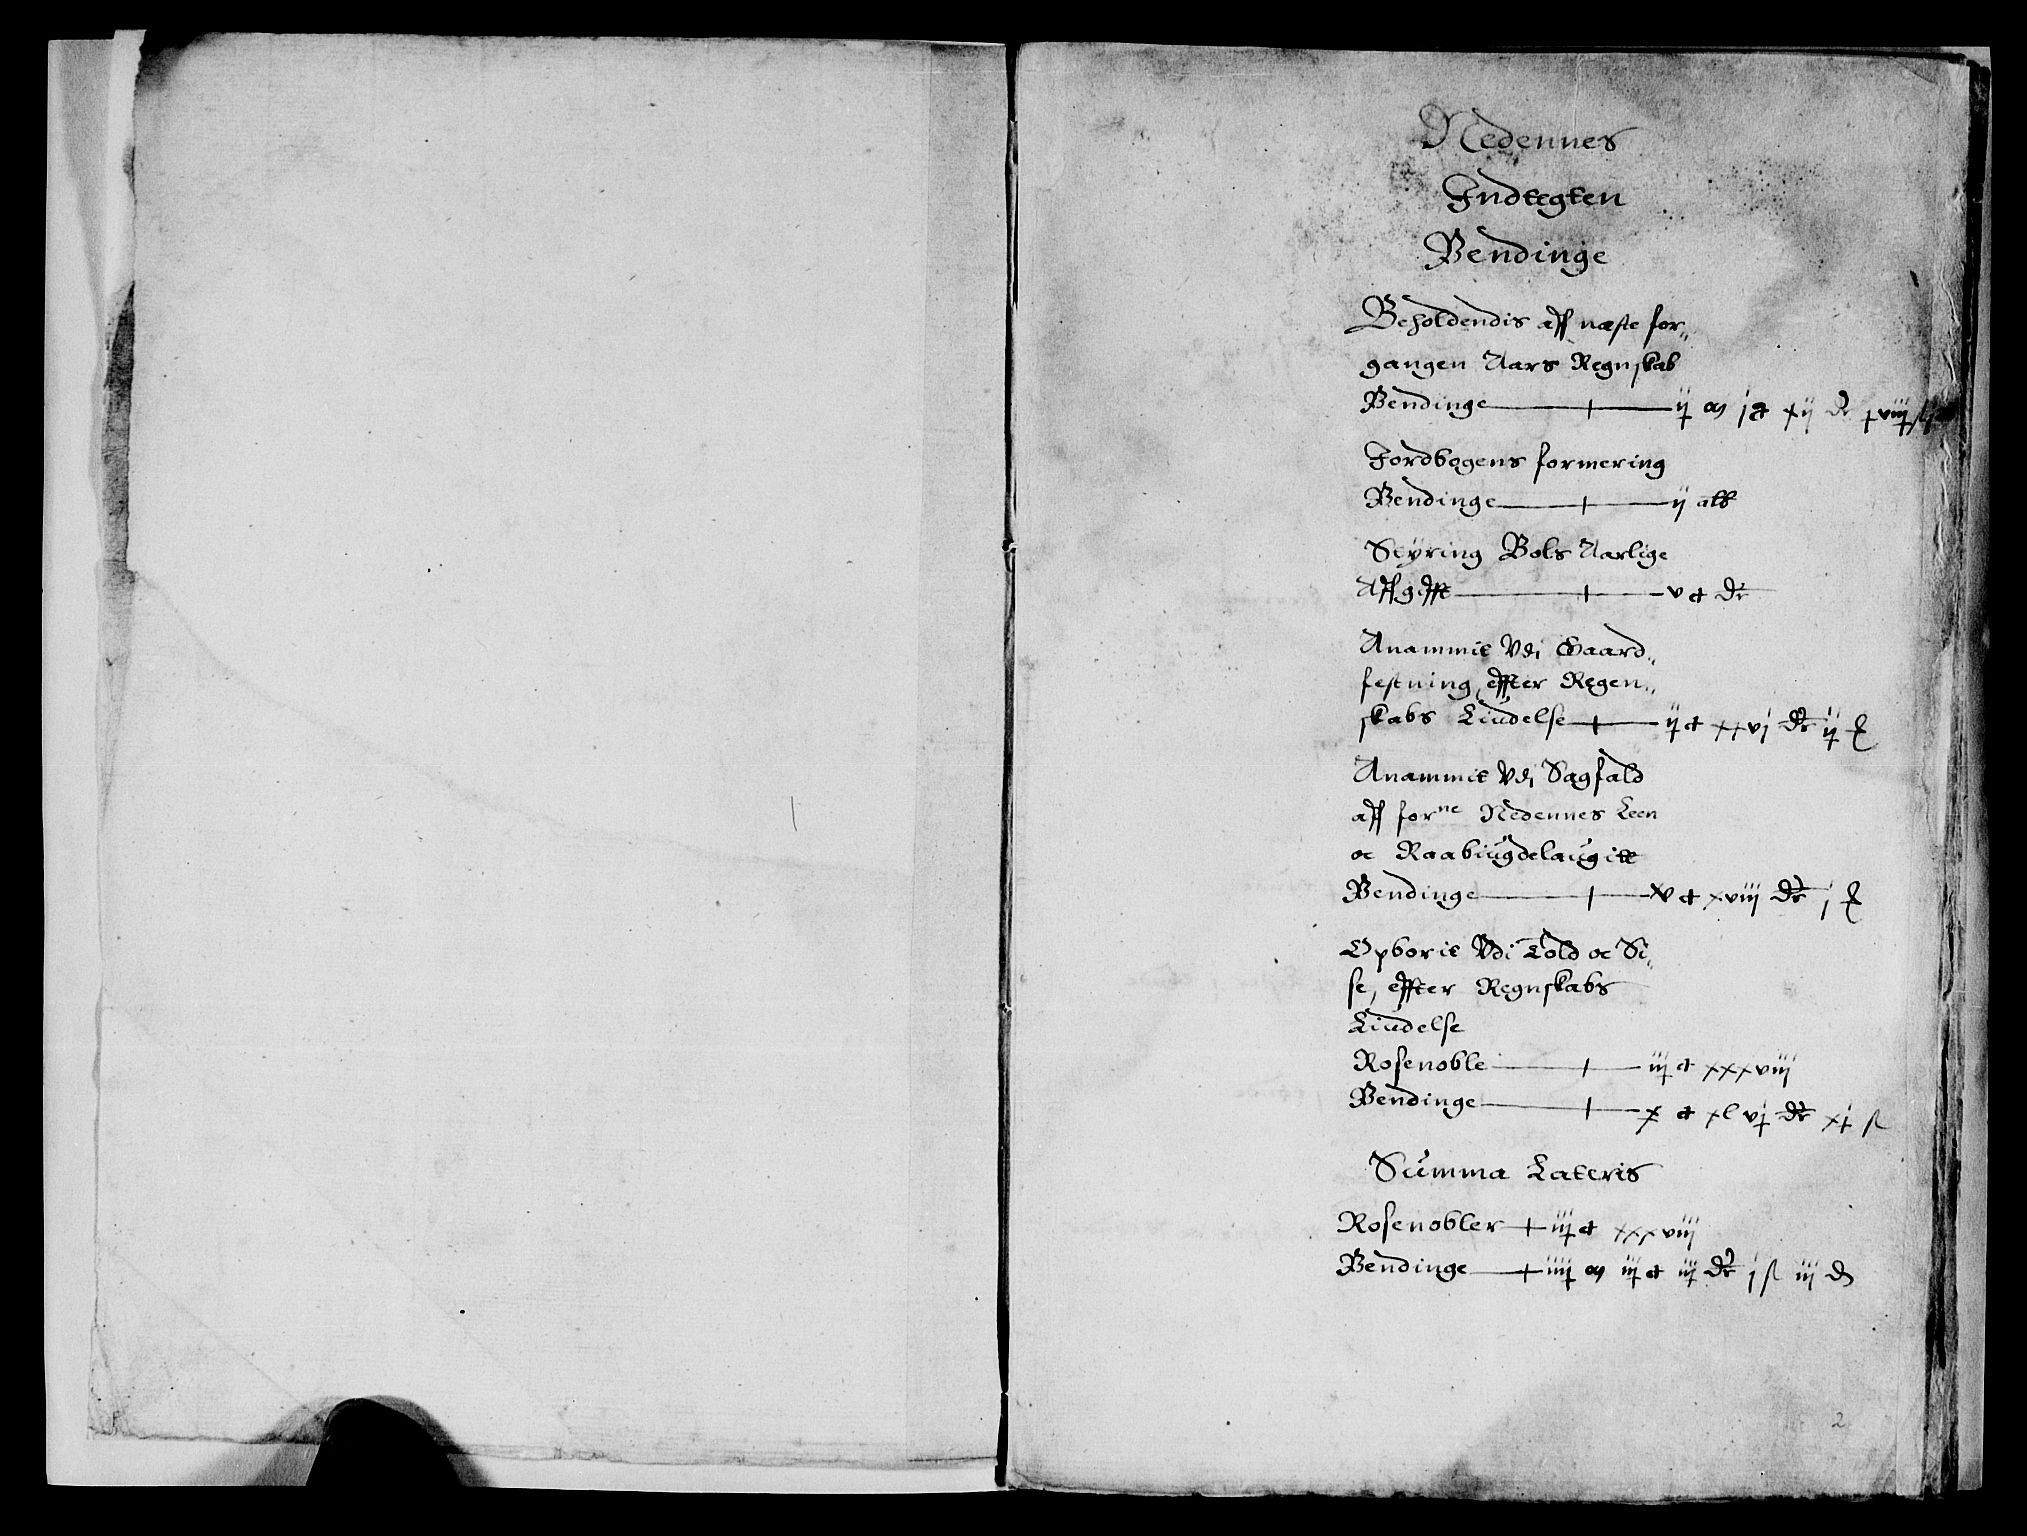 Nedennes
Indtegten
Pendinge
Beholdendis aff næste for„
gangen Aars Regnskab
Pendinge ij m j c xij dr
Jordbogens formering
Pendinge ij alb
Styring Bols Aarlige
Affgifft v c dr
Anammit Vdi Gaard„
festning, effter Regen„
skabs Liudelse ij c xxvj dr ij
Anammit Vdi Sagfald
aff forne Nedennes Leen
oc Raabiugdelaugitt
Pendinge xv c xviij dr j
Opborit Vdi Told oc Si„
se, effter Regnskabs
Liudelse
Rosenoble iij c xxxviij
Pendinge x c xlvj dr xj ß
Summa Lateris
Rosenobler iij c xxxviij
Pendinge iiij m iij c iij dr j ß iij d
2